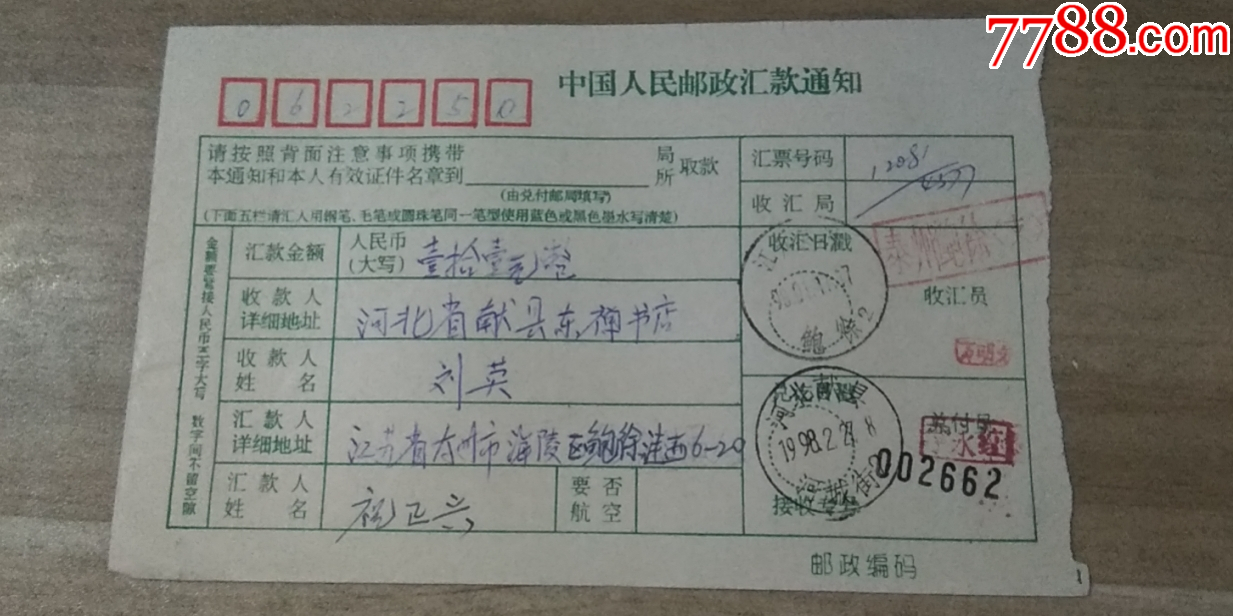 7788.com
中国人民邮政汇款通知
0 6 2 2 5 0
请按照背面注意事项携带
本通知和本人有效证件名章到
局
所
取款
(由兑付邮局填写)
(下面五栏请汇人用钢笔、毛笔或圆珠笔同一笔型使用蓝色或黑色墨水写清楚)
汇票号码
1208
收汇局
金额要紧接人民币三字大写 数字间不留空隙
汇款金额
人民币
(大写)
壹拾壹元整
收汇日戳
鲍徐2
收汇员
收款人
详细地址
河北省献县东禅书店
收款人
姓名
刘英
汇款人
详细地址
江苏省泰州市海陵区鲍徐洼西6-20
河北献县
1998.2
兑付员
002662
汇款人
姓名
祝正兴
要否
航空
接收专员
邮政编码